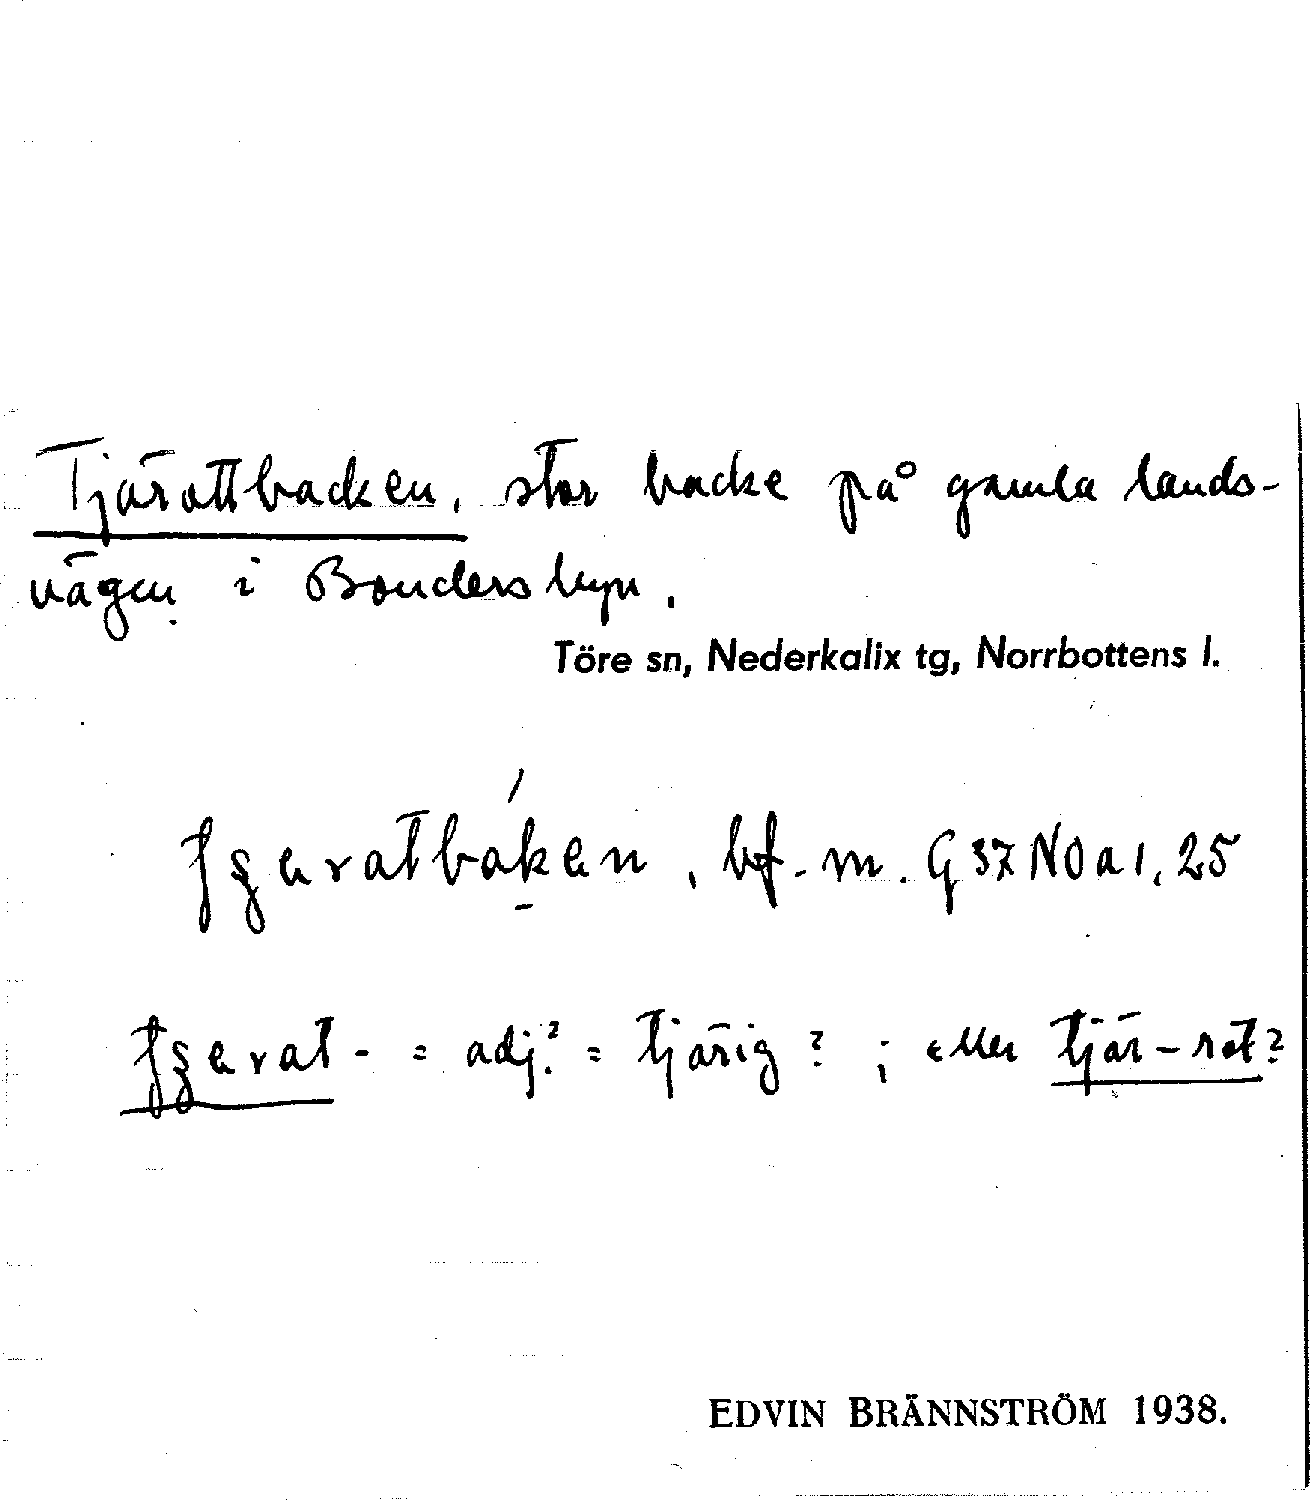 Tjärattbacken, stor backe på gamla lands-
vägen i Bondersbyn.
Töre sn, Nederkalix tg, Norrbottens l.
bf. m. G 37 NO a 1, 25
= adj.? = tjärig? ; eller tjär-rot?
EDVIN BRÄNNSTRÖM 1938.